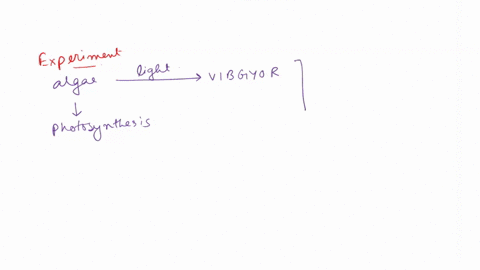 Experiment
algae light VIBGYOR
photosynthesis